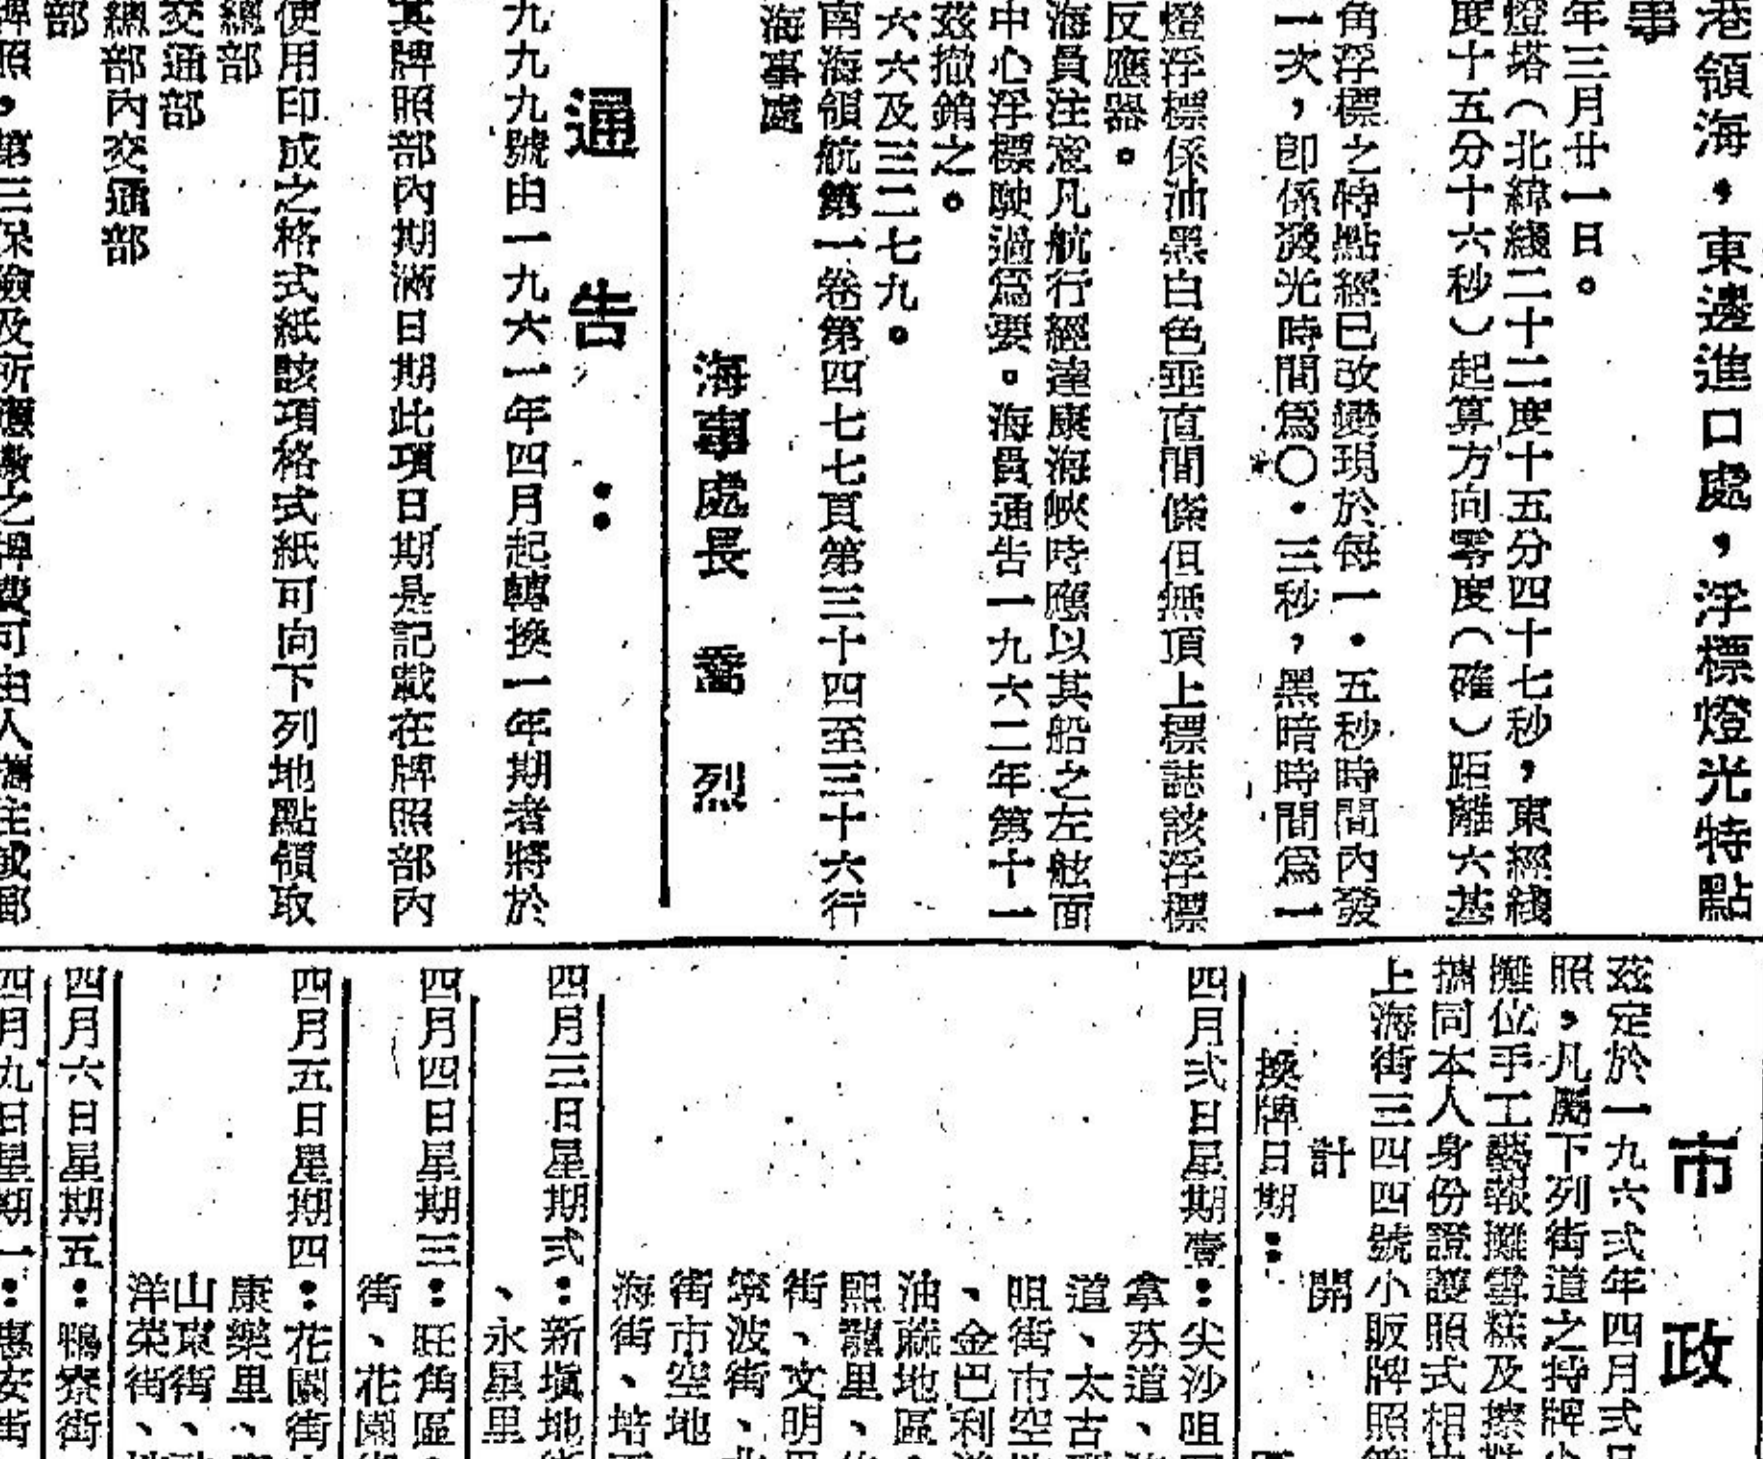 港領海,東邊進口處,浮標燈光特點
事
年三月廿一日。
燈塔(北緯綫二十二度十五分四十七秒,東經綫
度十五分十六秒)起算方向零度(確)距離六基
角浮標之特點經已改變現於每一・五秒時間內發
一次,卽係發光時間爲〇・三秒,黑暗時間爲一
燈浮標係油黑白色垂直間條但無頂上標誌該浮標
反應器。
海員注意凡航行經達康海峽時應以其船之左舷面
中心浮標駛過爲要。海員通告一九六二年第十一
茲撤銷之。
六六及三二七九。
南海領航第一卷第四七七頁第三十四至三十六行
海事處
海事處長 喬 烈
通 告 :
九九九號由一九六一年四月起轉換一年期者將於
其牌照部內期滿日期此項日期是記載在牌照部內
使用印成之格式紙該項格式紙可向下列地點領取
總部
交通部
總部內交通部
部
牌照,第三保險及所應繳之牌費可由人攜往或郵
市 政
茲定於一九六弍年四月弍日
照,凡屬下列街道之持牌小
攤位手工藝報攤雪糕及擦鞋
攜同本人身份證護照式相
上海街三四四號小販牌照
計 開
換牌日期:
四月弍日星期壹:尖沙咀
拿芬道、
道、太古
咀街市空地
、金巴利道
油蔴地區
熙龍里、
街、文明里
寧波街、北
街市空地
海街、培
四月三日星期弍:新塡地街
、永星里
四月四日星期三:旺角區
街、花園街
四月五日星期四:花園街
康樂里、
山東街、
洋菜街、
四月六日星期五:鴨寮街
四月九日星期一:惠安街